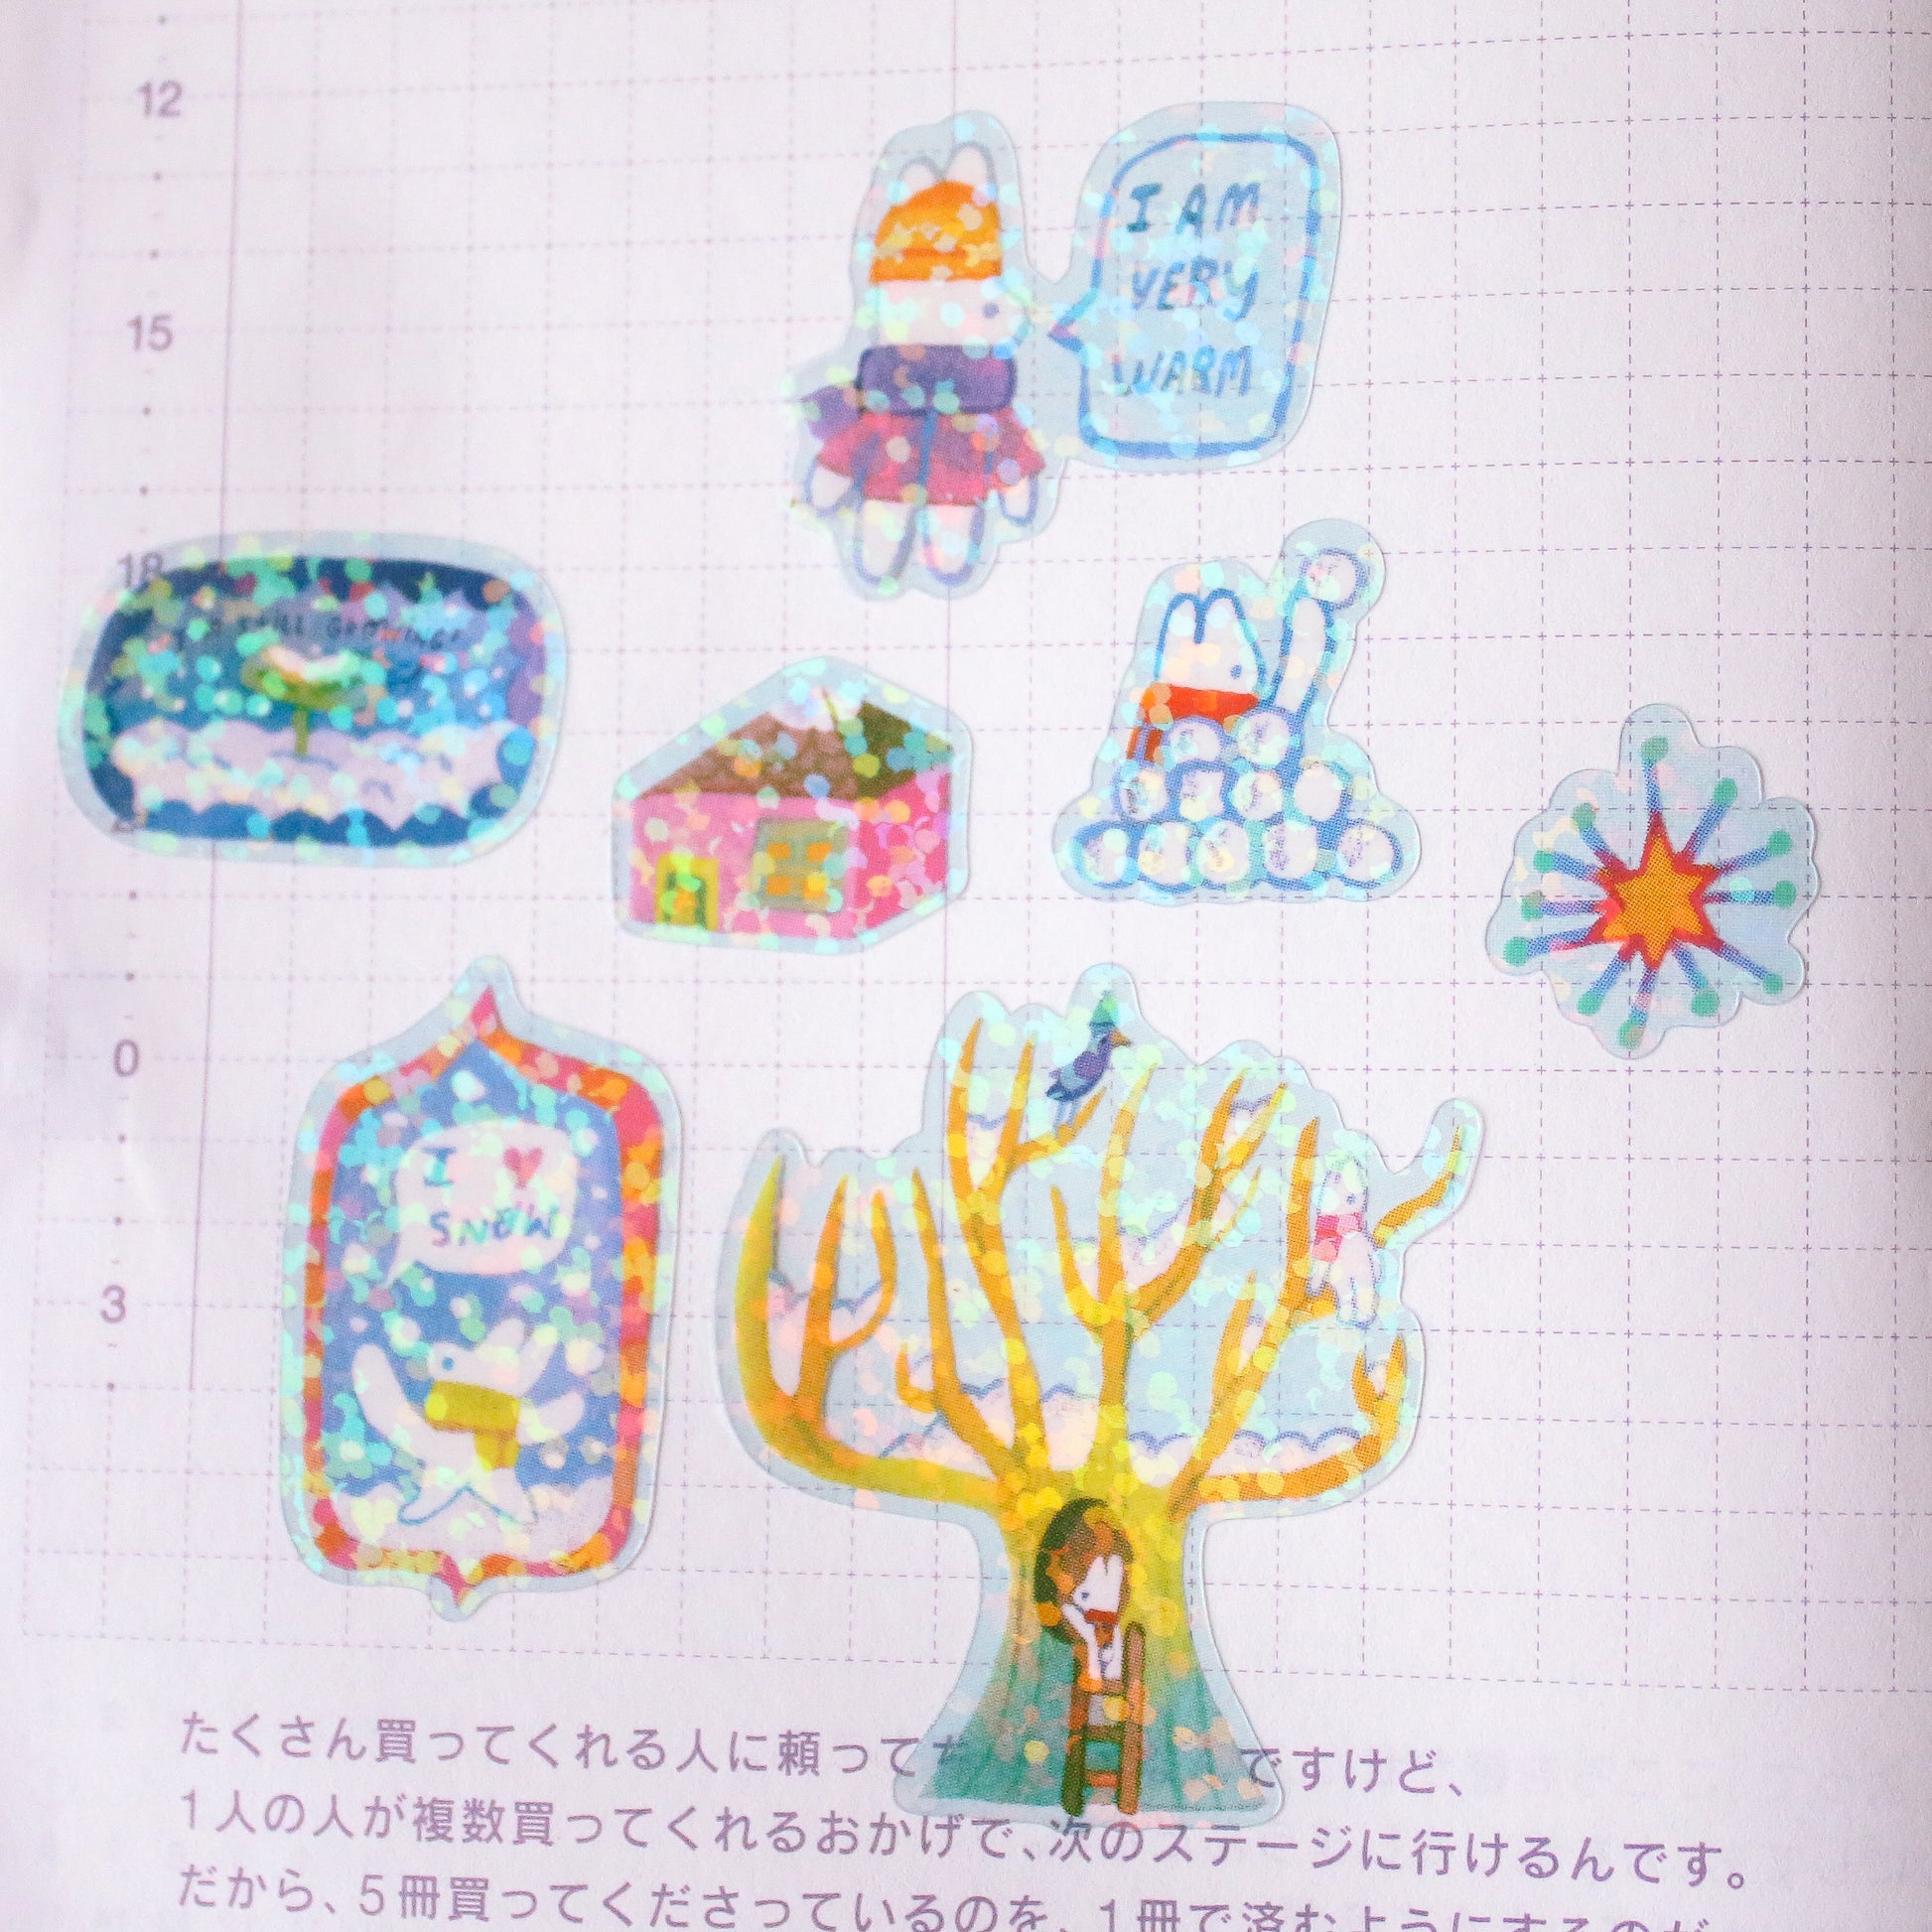 12
I AM
VERY
WARM
15
18
STILL GROWING
0
I ♥
SNOW
3
たくさん買ってくれる人に頼って ですけど、
1人の人が複数買ってくれるおかげで、次のステージに行けるんです。
だから、5冊買ってくださっているのを、1冊で済むようにするのが